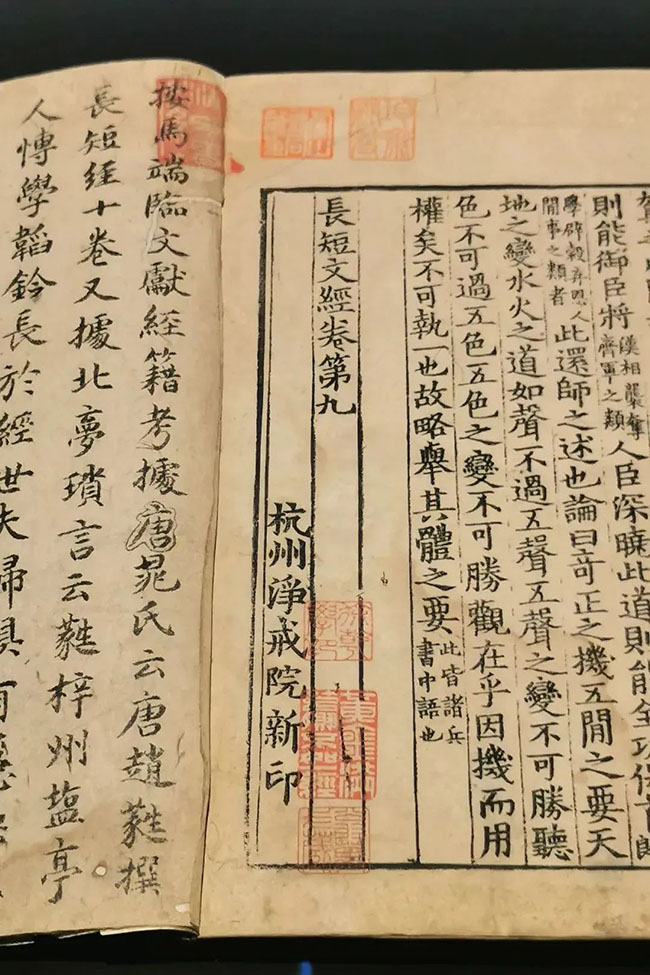 則能御臣將漢相襲奪齊軍之類人臣深曉此道則能全功保首
學辟穀弃人閒事之類者此還師之述也論曰奇正之機五閒之要天
地之變水火之道如聲不過五聲五聲之變不可勝聽
色不可過五色五色之變不可勝觀在乎因機而用
權矣不可執一也故略舉其體之要此皆諸兵書中語也
長短文經卷第九
杭州淨戒院新印
按馬端臨文獻經籍考據唐晁氏云唐趙蕤撰
長短經十卷又據北夢瑣言云蕤梓州塩亭
人博學韜鈐長於經世夫婦俱有